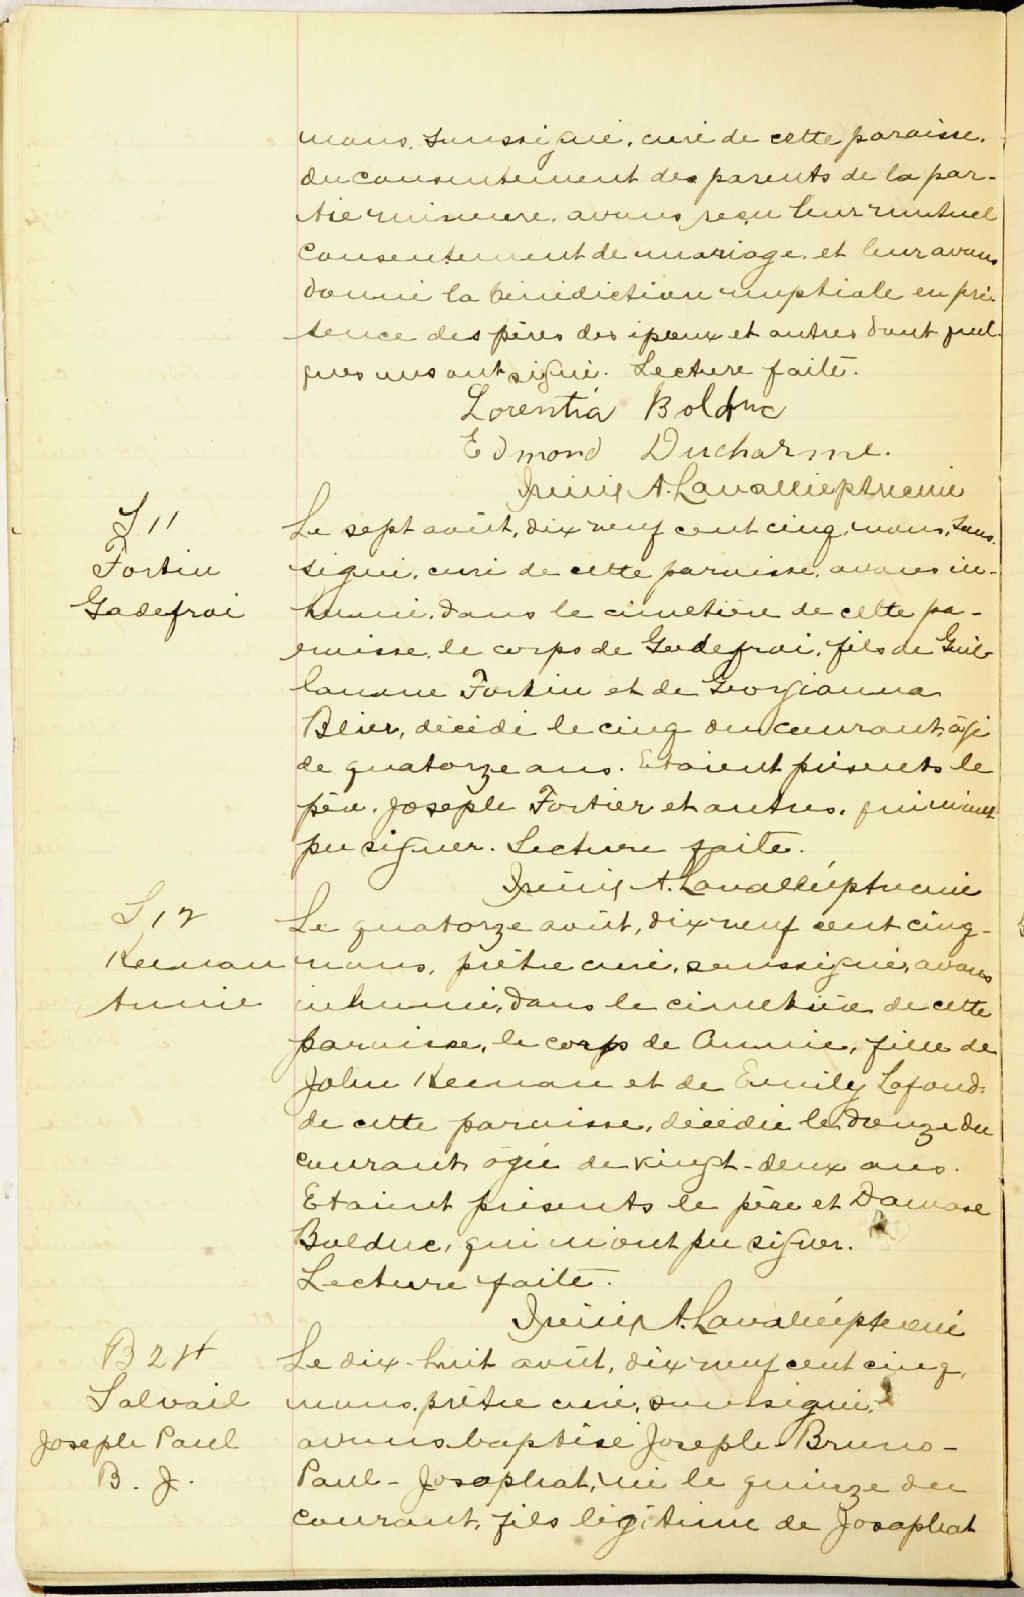 nous, soussigné, curé de cette paroisse,
du consentement des parents de la par-
tie mineure, avons reçu leur mutuel
consentement de mariage, et leur avons
donné la bénédiction nuptiale en pré-
sence des pères des époux et autres dont quel-
ques uns ont signé. Lecture faite.
Lorentia Bolduc
Edmond Ducharme.
A. Lavallée ptre curé
S 11
Fortin
Godefroi
Le sept août, dix neuf cent cinq, nous, sous-
signé, curé de cette paroisse, avons in-
humé, dans le cimetière de cette pa-
roisse, le corps de Godefroi, fils de Guil-
laume Fortin et de Georgianna
Blier, décédé le cinq du courant, âgé
de quatorze ans. Etaient présents le
père, Joseph Fortier et autres, qui n'ont
pu signer. Lecture faite.
A. Lavallée ptre curé
S 12
Keenan
Annie
Le quatorze août, dix neuf cent cinq-
nous, prêtre curé, soussigné, avons
inhumé, dans le cimetière de cette
paroisse, le corps de Annie, fille de
John Keenan et de Emily Lafond,
de cette paroisse, décédée le douze du
courant, âgée de vingt-deux ans.
Etaient présents le père et Damase
Bolduc, qui n'ont pu signer.
Lecture faite.
A. Lavallée ptre curé
B 24
Salvail
Joseph Paul
B. J.
Le dix-huit août, dix neuf cent cinq,
nous, prêtre curé, soussigné,
avons baptisé Joseph-Bruno-
Paul-Josaphat, né le quinze du
courant, fils légitime de Josaphat